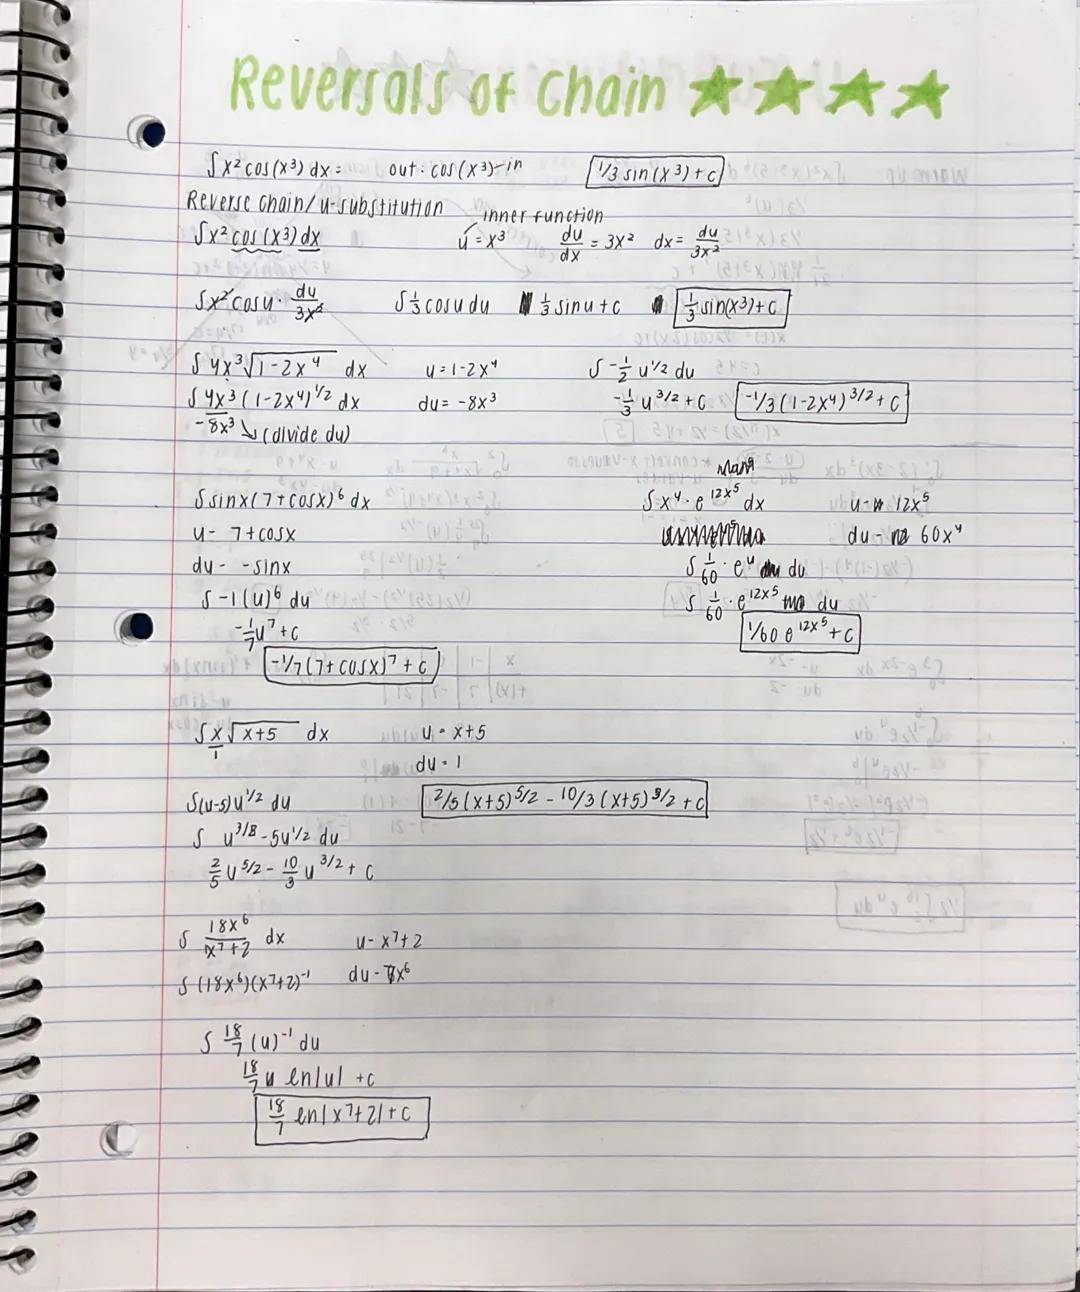 Reversals of Chain ★★★★
∫x² cos(x³) dx =   out: cos(x³)-in   1/3 sin(x³)+c
Reverse chain/u-substitution
inner function
∫x² cos (x³) dx   u = x³   du/dx = 3x²   dx = du/3x²
∫x² cosu · du/3x²   ∫ 1/3 cosu du   1/3 sinu + c   1/3 sin(x³)+c
∫ 4x³√(1-2x⁴) dx   u = 1-2x⁴   ∫ -1/2 u^1/2 du
∫ 4x³ (1-2x⁴)^1/2 dx   du = -8x³   -1/3 u^3/2 + c   -1/3(1-2x⁴)^3/2 + c
-8x³ ↘ (divide du)
∫sinx(7+cosx)⁶ dx
u- 7+cosx
du- -sinx
∫ -1(u)⁶ du
-1/7 u⁷ + c
-1/7(7+cosx)⁷ + c
∫x⁴· e^12x⁵ dx   u- 12x⁵
du- 60x⁴
∫ 1/60 · e^u du
∫ 1/60 · e^12x⁵ du
1/60 e^12x⁵ + c
∫x√(x+5) dx   u = x+5
1
du = 1
∫(u-5)u^1/2 du   2/5(x+5)^5/2 - 10/3(x+5)^3/2 + c
∫ u^3/2 -5u^1/2 du
2/5 u^5/2 - 10/3 u^3/2 + c
∫ 18x⁶/x⁷+2 dx   u- x⁷+2
∫ (18x⁶)(x⁷+2)⁻¹   du- 7x⁶
∫ 18/7 (u)⁻¹ du
18/7 ln|u| + c
18/7 ln|x⁷+2| + c